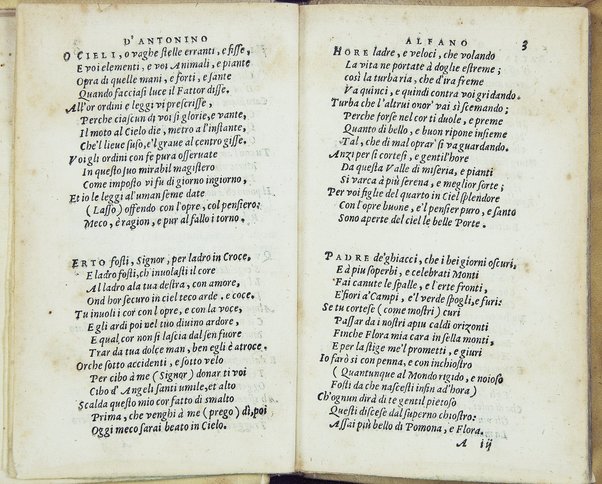 D'ANTONINO
O CIELI, o vaghe stelle erranti, e fisse,
E voi elementi, e voi Animali, e piante
Opra di quelle mani, e forti, e sante
Quando facciasi luce il Fattor disse.
All'or ordini e leggi vi prescrisse,
Perche ciascun di voi si glorie, e vante,
Il moto al Cielo die, metro a l'instante,
Che'l lieve suso, e'l grave al centro gisse.
Voi gli ordini con fe pura osseruate
In questo suo mirabil magistero
Como imposto vi fu di giorno in giorno,
Et io le leggi al'uman seme date
(Lasso) offendo con l'opre, col pensiero:
Meco, è ragion, e pur al fallo i torno.
ERTO fosti, Signor, per ladro in Croce,
E ladro fosti, ch inuolasti il core
Al ladro ala tua destra, con amore,
Ond hor securo in ciel teco arde, e coce.
Tu inuoli i cor con l'opre, e con la voce,
E gli ardi poi nel tuo diuino ardore,
E qual, cor non si lascia dal sen fuore
Trar da tua dolce man, ben egli è atroce.
Or che sotto accidenti, e sotto velo
Per cibo à me (Signor) donar ti voi
Cibo d'Angeli santi umile, et alto
Scalda questo mio cor fatto di smalto
Prima, che venghi à me (prego) dì, poi
Oggi meco sarai beato in Cielo.
ALFANO
3
HORE ladre, e veloci, che volando
La vita ne portate à doglie estreme;
così la turba ria, che d'ira freme
Va quinci, e quindi contra voi gridando.
Turba che l'altrui onor' vai sì scemando;
Perche forse nel cor ti duole, e preme
Quanto di bello, e buon ripone insieme
Tal, che di mal oprar' si va guardando.
Anzi per si cortesi, e gentil'hore
Da questa Valle di miseria, e pianti
Si varca à più serena, e meglior sorte;
Per voi figlie del quarto in Ciel splendore
Con l'opre buone, e'l pensier puro, e santo
Sono aperte del ciel le belle Porte.
PADRE de'ghiacci, che i bei giorni oscuri,
E à piu soperbi, e celebrati Monti
Fai canute le spalle, e l'erte fronti,
E'fiori a'Campi, e'l verde spogli, e furi:
Se tu cortese (come mostri) curi
Passar da i nostri a più caldi orizonti
Finche Flora mia cara in sella monti,
E per la stige me'l prometti, e giuri
Io farò si con penna, e con inchiostro
(Quantunque al Mondo rigido, e noioso
Fosti da che nascesti insin ad'hora)
Ch'ognun dirà di te gentil pietoso
Questi discese dal superno chiostro:
Assai più bello di Pomona, e Flora.
A ij